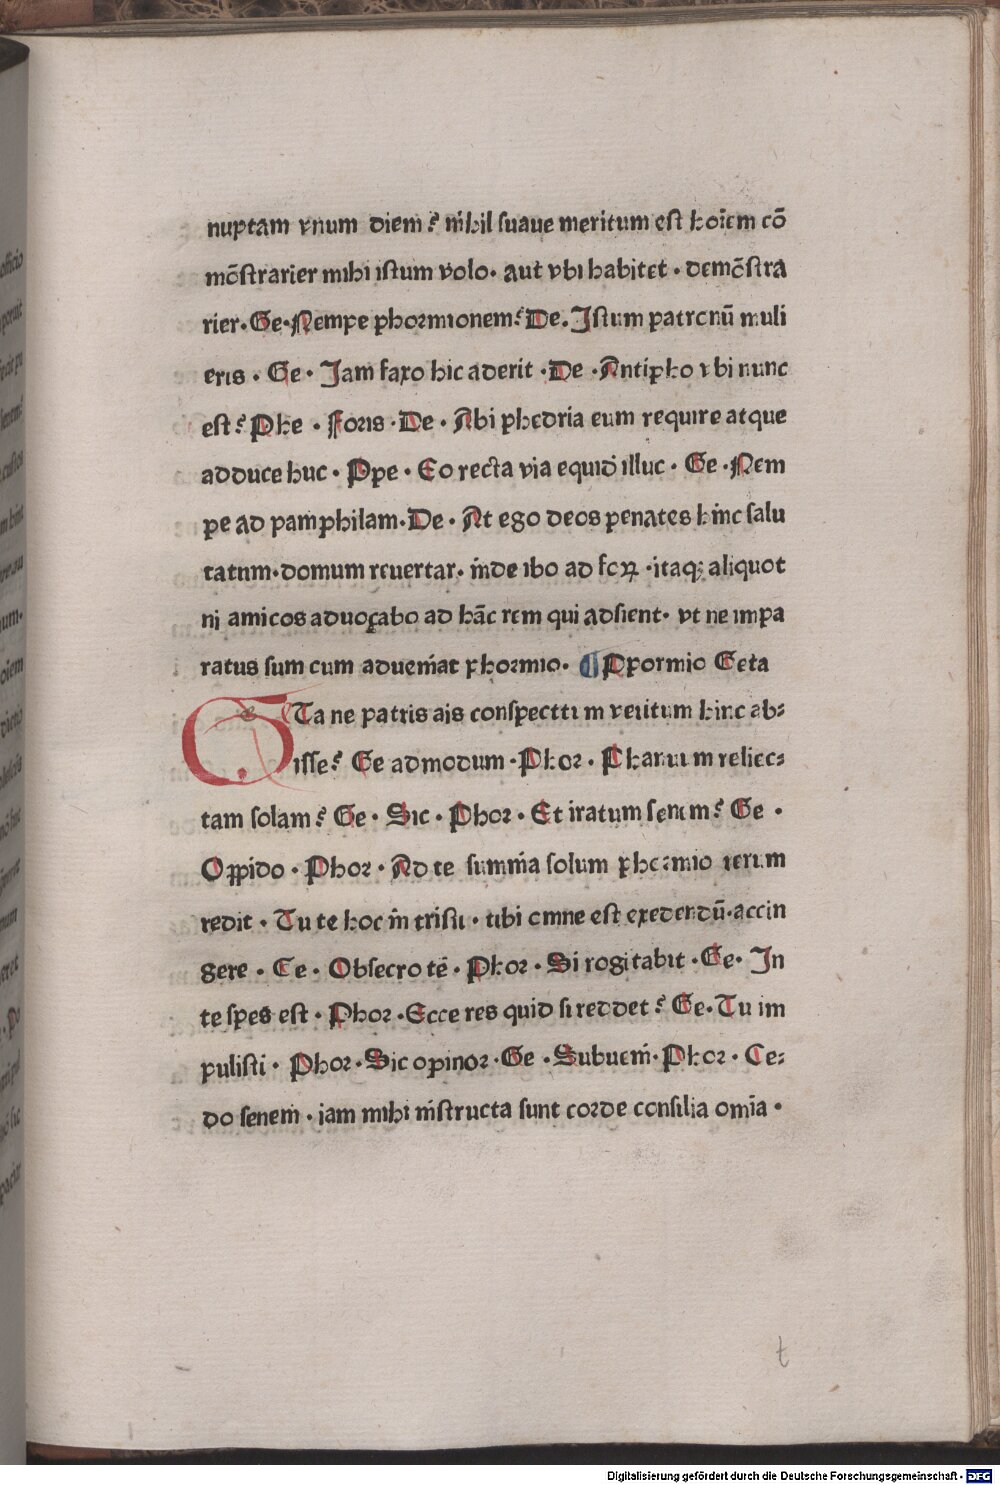 nuptam vnum diem? nihil suaue meritum est hoiem cō
mōstrarier mihi istum volo· aut vbi habitet · demōstra
rier· Ge· Nempe phormionem? De. Istum patronū muli
eris · Ge · Jam faxo hic aderit · De · Antipho vbi nunc
est? Phe · Foris · De · Abi phedria eum require atque
adduce huc · Ppe · Eo recta via equid illuc · Ge · Nem
pe ad pamphilam· De · At ego deos penates hinc salu
tatum· domum reuertar· inde ibo ad foꝝ · itaqꝫ aliquot
nj amicos aduocabo ad hāc rem qui adsient· vt ne impa
ratus sum cum adueniat phormio· ¶ Ppormio Geta
Ita ne patris ais conspectti m veritum hinc ab⸗
isse? Ge admodum · Phor · Phanium relicc⸗
tam solam? Ge · Sic · Phor · Et iratum senem? Ge ·
Oppido · Phor · Ad te summa solum phormio rerum
redit · Tu te hoc in tristi · tibi omne est exedendū· accin
gere · Ge · Obsecro tē · Phor · Si rogitabit · Ge· In
te spes est · Phor · Ecce res quid si reddet? Ge· Tu im
pulisti · Phor · Sic opinor · Ge · Subueni· Phor · Ce⸗
do senem · iam mihi instructa sunt corde consilia omia ·
t
Digitalisierung gefördert durch die Deutsche Forschungsgemeinschaft · DFG